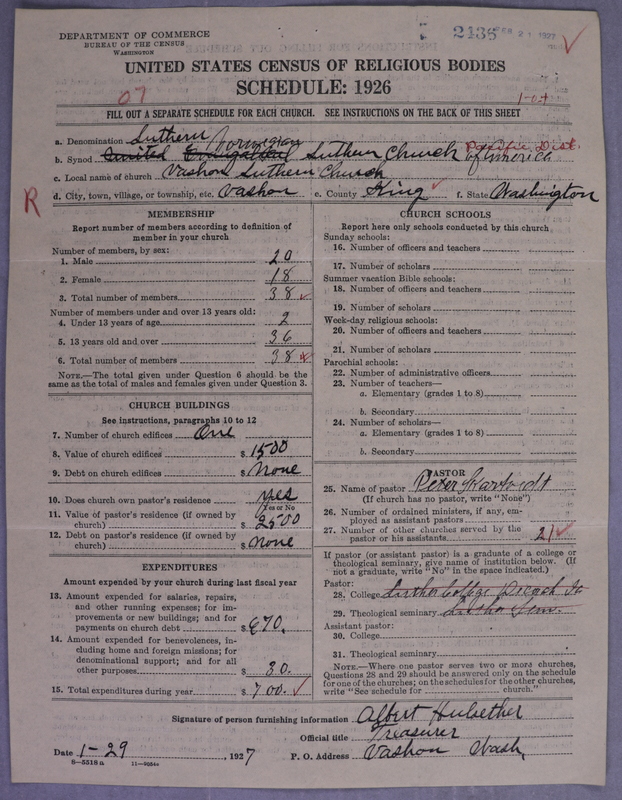 DEPARTMENT OF COMMERCE
BUREAU OF THE CENSUS
WASHINGTON
2436 FEB 21 1927
UNITED STATES CENSUS OF RELIGIOUS BODIES
SCHEDULE: 1926
07
1-04
FILL OUT A SEPARATE SCHEDULE FOR EACH CHURCH. SEE INSTRUCTIONS ON THE BACK OF THIS SHEET
a. Denomination Luthern
Norwegian Pacific Dist.
b. Synod United Evangelical Luthern Church of America
c. Local name of church Vashon Luthern Church
d. City, town, village, or township, etc. Vashon e. County King f. State Washington
R
MEMBERSHIP
Report number of members according to definition of
member in your church
Number of members, by sex:
1. Male 20
2. Female 18
3. Total number of members 38
Number of members under and over 13 years old:
4. Under 13 years of age 2
5. 13 years old and over 36
6. Total number of members 38
NOTE.—The total given under Question 6 should be the
same as the total of males and females given under Question 3.
CHURCH BUILDINGS
See instructions, paragraphs 10 to 12
7. Number of church edifices One
8. Value of church edifices $ 1500
9. Debt on church edifices $ None
10. Does church own pastor's residence yes
Yes or No
11. Value of pastor's residence (if owned by
church) $ 2500
12. Debt on pastor's residence (if owned by
church) $ None
EXPENDITURES
Amount expended by your church during last fiscal year
13. Amount expended for salaries, repairs,
and other running expenses; for im-
provements or new buildings; and for
payments on church debt $ 670.
14. Amount expended for benevolences, in-
cluding home and foreign missions; for
denominational support; and for all
other purposes $ 30.
15. Total expenditures during year $ 700.
CHURCH SCHOOLS
Report here only schools conducted by this church
Sunday schools:
16. Number of officers and teachers
17. Number of scholars
Summer vacation Bible schools:
18. Number of officers and teachers
19. Number of scholars
Week-day religious schools:
20. Number of officers and teachers
21. Number of scholars
Parochial schools:
22. Number of administrative officers
23. Number of teachers—
a. Elementary (grades 1 to 8)
b. Secondary
24. Number of scholars—
a. Elementary (grades 1 to 8)
b. Secondary
PASTOR
25. Name of pastor Peter
(If church has no pastor, write "None")
26. Number of ordained ministers, if any, em-
ployed as assistant pastors
27. Number of other churches served by the
pastor or his assistants 21
If pastor (or assistant pastor) is a graduate of a college or
theological seminary, give name of institution below. (If
not a graduate, write "No" in the space indicated.)
Pastor:
28. College Luther College Decorah Ia
29. Theological seminary Luther Sem.
Assistant pastor:
30. College
31. Theological seminary
NOTE.—Where one pastor serves two or more churches,
Questions 28 and 29 should be answered only on the schedule
for one of the churches; on the schedules for the other churches,
write "See schedule for church."
Signature of person furnishing information Albert Hulsether
Official title Treasurer
Date 1-29, 1927 P. O. Address Vashon Wash.
8-5518a